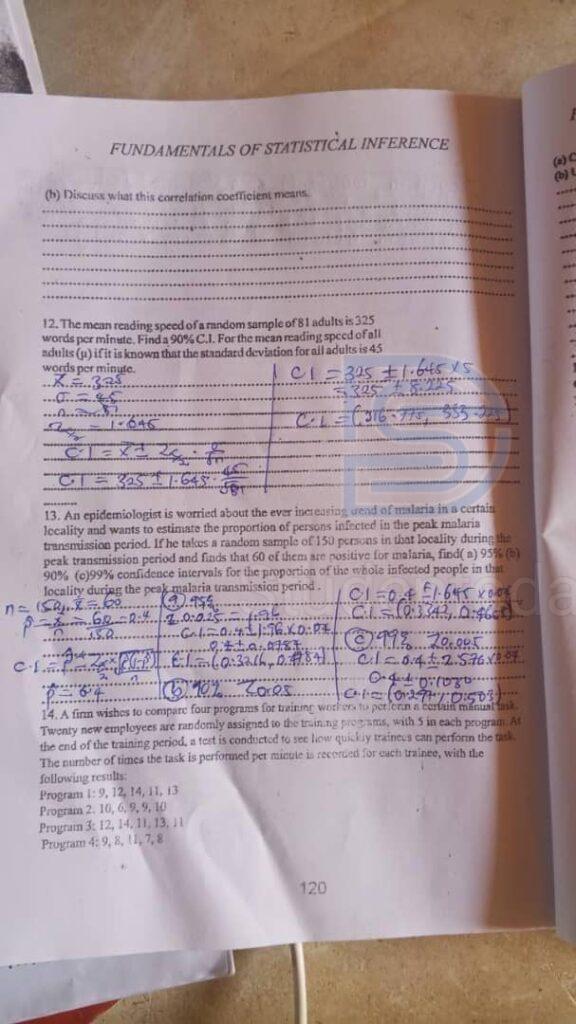 FUNDAMENTALS OF STATISTICAL INFERENCE
(b) Discuss what this correlation coefficient means.
12. The mean reading speed of a random sample of 81 adults is 325
words per minute. Find a 90% C.I. For the mean reading speed of all
adults (μ) if it is known that the standard deviation for all adults is 45
words per minute.
x̄ = 325
σ = 45
n = 81
= 1.645
C.I = x̄ ± Zα/2 · σ/√n
C.I = 325 ± 1.645 · 45/√81
C.I = 325 ± 1.645 × 5
= 325 ± 8.225
C.I = (316.775, 333.225)
13. An epidemiologist is worried about the ever increasing trend of malaria in a certain
locality and wants to estimate the proportion of persons infected in the peak malaria
transmission period. If he takes a random sample of 150 persons in that locality during the
peak transmission period and finds that 60 of them are positive for malaria, find( a) 95% (b)
90% (c)99% confidence intervals for the proportion of the whole infected people in that
locality during the peak malaria transmission period .
n = 150, x = 60
p = x/n = 60/150 = 0.4
p = 0.4
(a) 95%
Z 0.025 = 1.96
C.I = 0.4 ± 1.96 × 0.04
0.4 ± 0.0784
C.I = (0.3216, 0.4784)
(b) 90% Z0.05
C.I = 0.4 ± 1.645 × 0.04
C.I = (0.342, 0.4668)
(c) 99% Z0.005
C.I = 0.4 ± 2.576 × 0.04
0.4 ± 0.1030
C.I = (0.297, 0.503)
14. A firm wishes to compare four programs for training workers to perform a certain manual task.
Twenty new employees are randomly assigned to the training programs, with 5 in each program. At
the end of the training period, a test is conducted to see how quickly trainees can perform the task.
The number of times the task is performed per minute is recorded for each trainee, with the
following results:
Program 1: 9, 12, 14, 11, 13
Program 2. 10, 6, 9, 9, 10
Program 3: 12, 14, 11, 13, 11
Program 4: 9, 8, 11, 7, 8
120
(b)